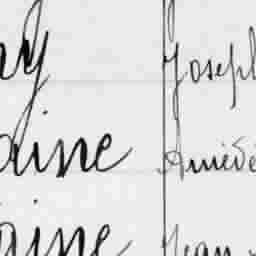 y Joseph
aine Amédé
aine Jean